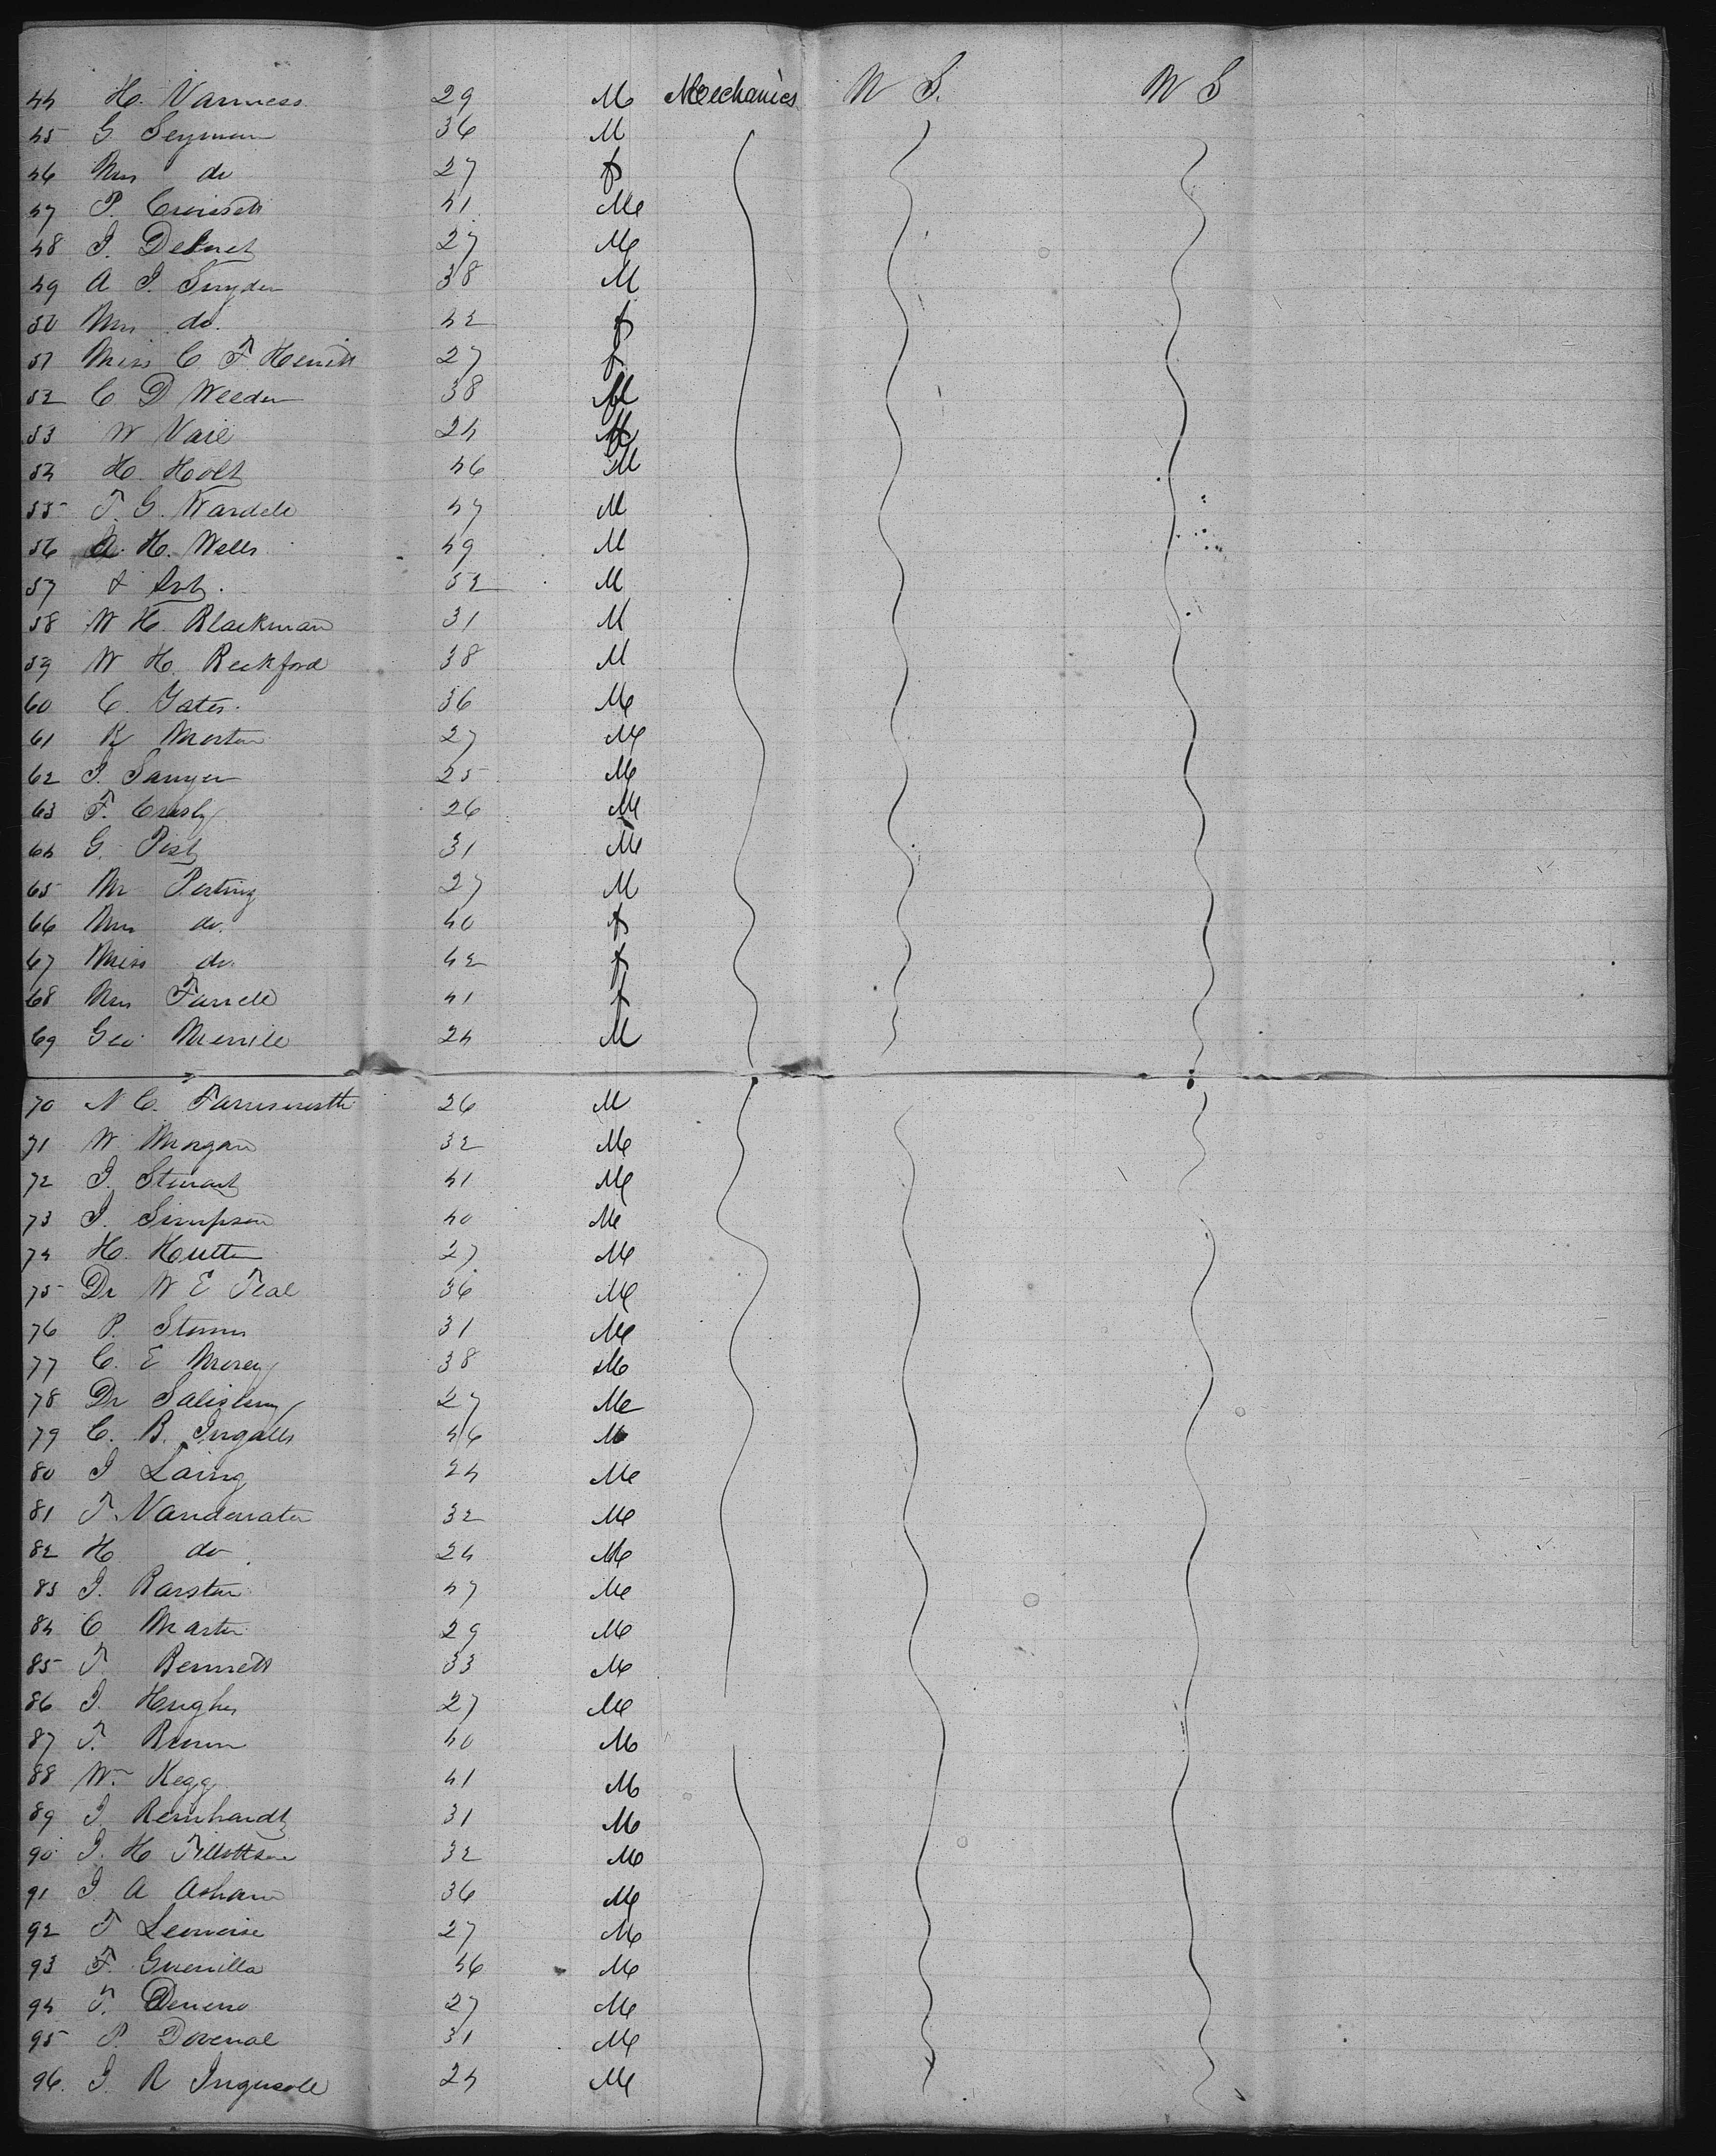 44 H. Vanness 29 M Mechanics U S. U S
45 G Seymour 36 M
46 Mrs do 27 f
47 P. Croissett 41 M
48 J. Debnet 27 M
49 A J. Snyder 38 M
50 Mrs do. 42 f
51 Miss C F Hewitt 27 f
52 C D Weeden 38 M
53 W Vail 24 M
54 H. Holt 46 M
55 T. G. Wardell 47 M
56 A. H. Wells 49 M
57 52 M
58 W H. Blackman 31 M
59 W H. Beckford 38 M
60 C. Yates. 36 M
61 R Morton 27 M
62 J. Sawyer 25 M
63 F. Crosby 26 M
64 G. Post 31 M
65 Mr 27 M
66 Mrs do. 40 f
67 Miss do. 42 f
68 Mrs Farrell 41 f
69 Geo Merrill 24 M
70 N C. Farnsworth 26 M
71 W Morgan 32 M
72 J. Stewart 41 M
73 J. Simpson 40 M
74 H. Hutton 27 M
75 Dr W E Teal 36 M
76 P. Storms 31 M
77 C. E Morey 38 M
78 Dr Salisbury 27 M
79 C. B. Ingalls 46 M
80 J Laing 24 M
81 T. Vanderwater 32 M
82 H do 24 M
83 J. Barstow 47 M
84 C Martin 29 M
85 T. Bennett 33 M
86 J. Hughes 27 M
87 T. Brown 40 M
88 Wm Kegg 41 M
89 J. Bernhardt 31 M
90 J. H Tillottson 32 M
91 J. A Asham 36 M
92 T 27 M
93 F. Guerrilla 46 M
94 T. 27 M
95 P. Dovenal 31 M
96. J. R Ingersoll 24 M